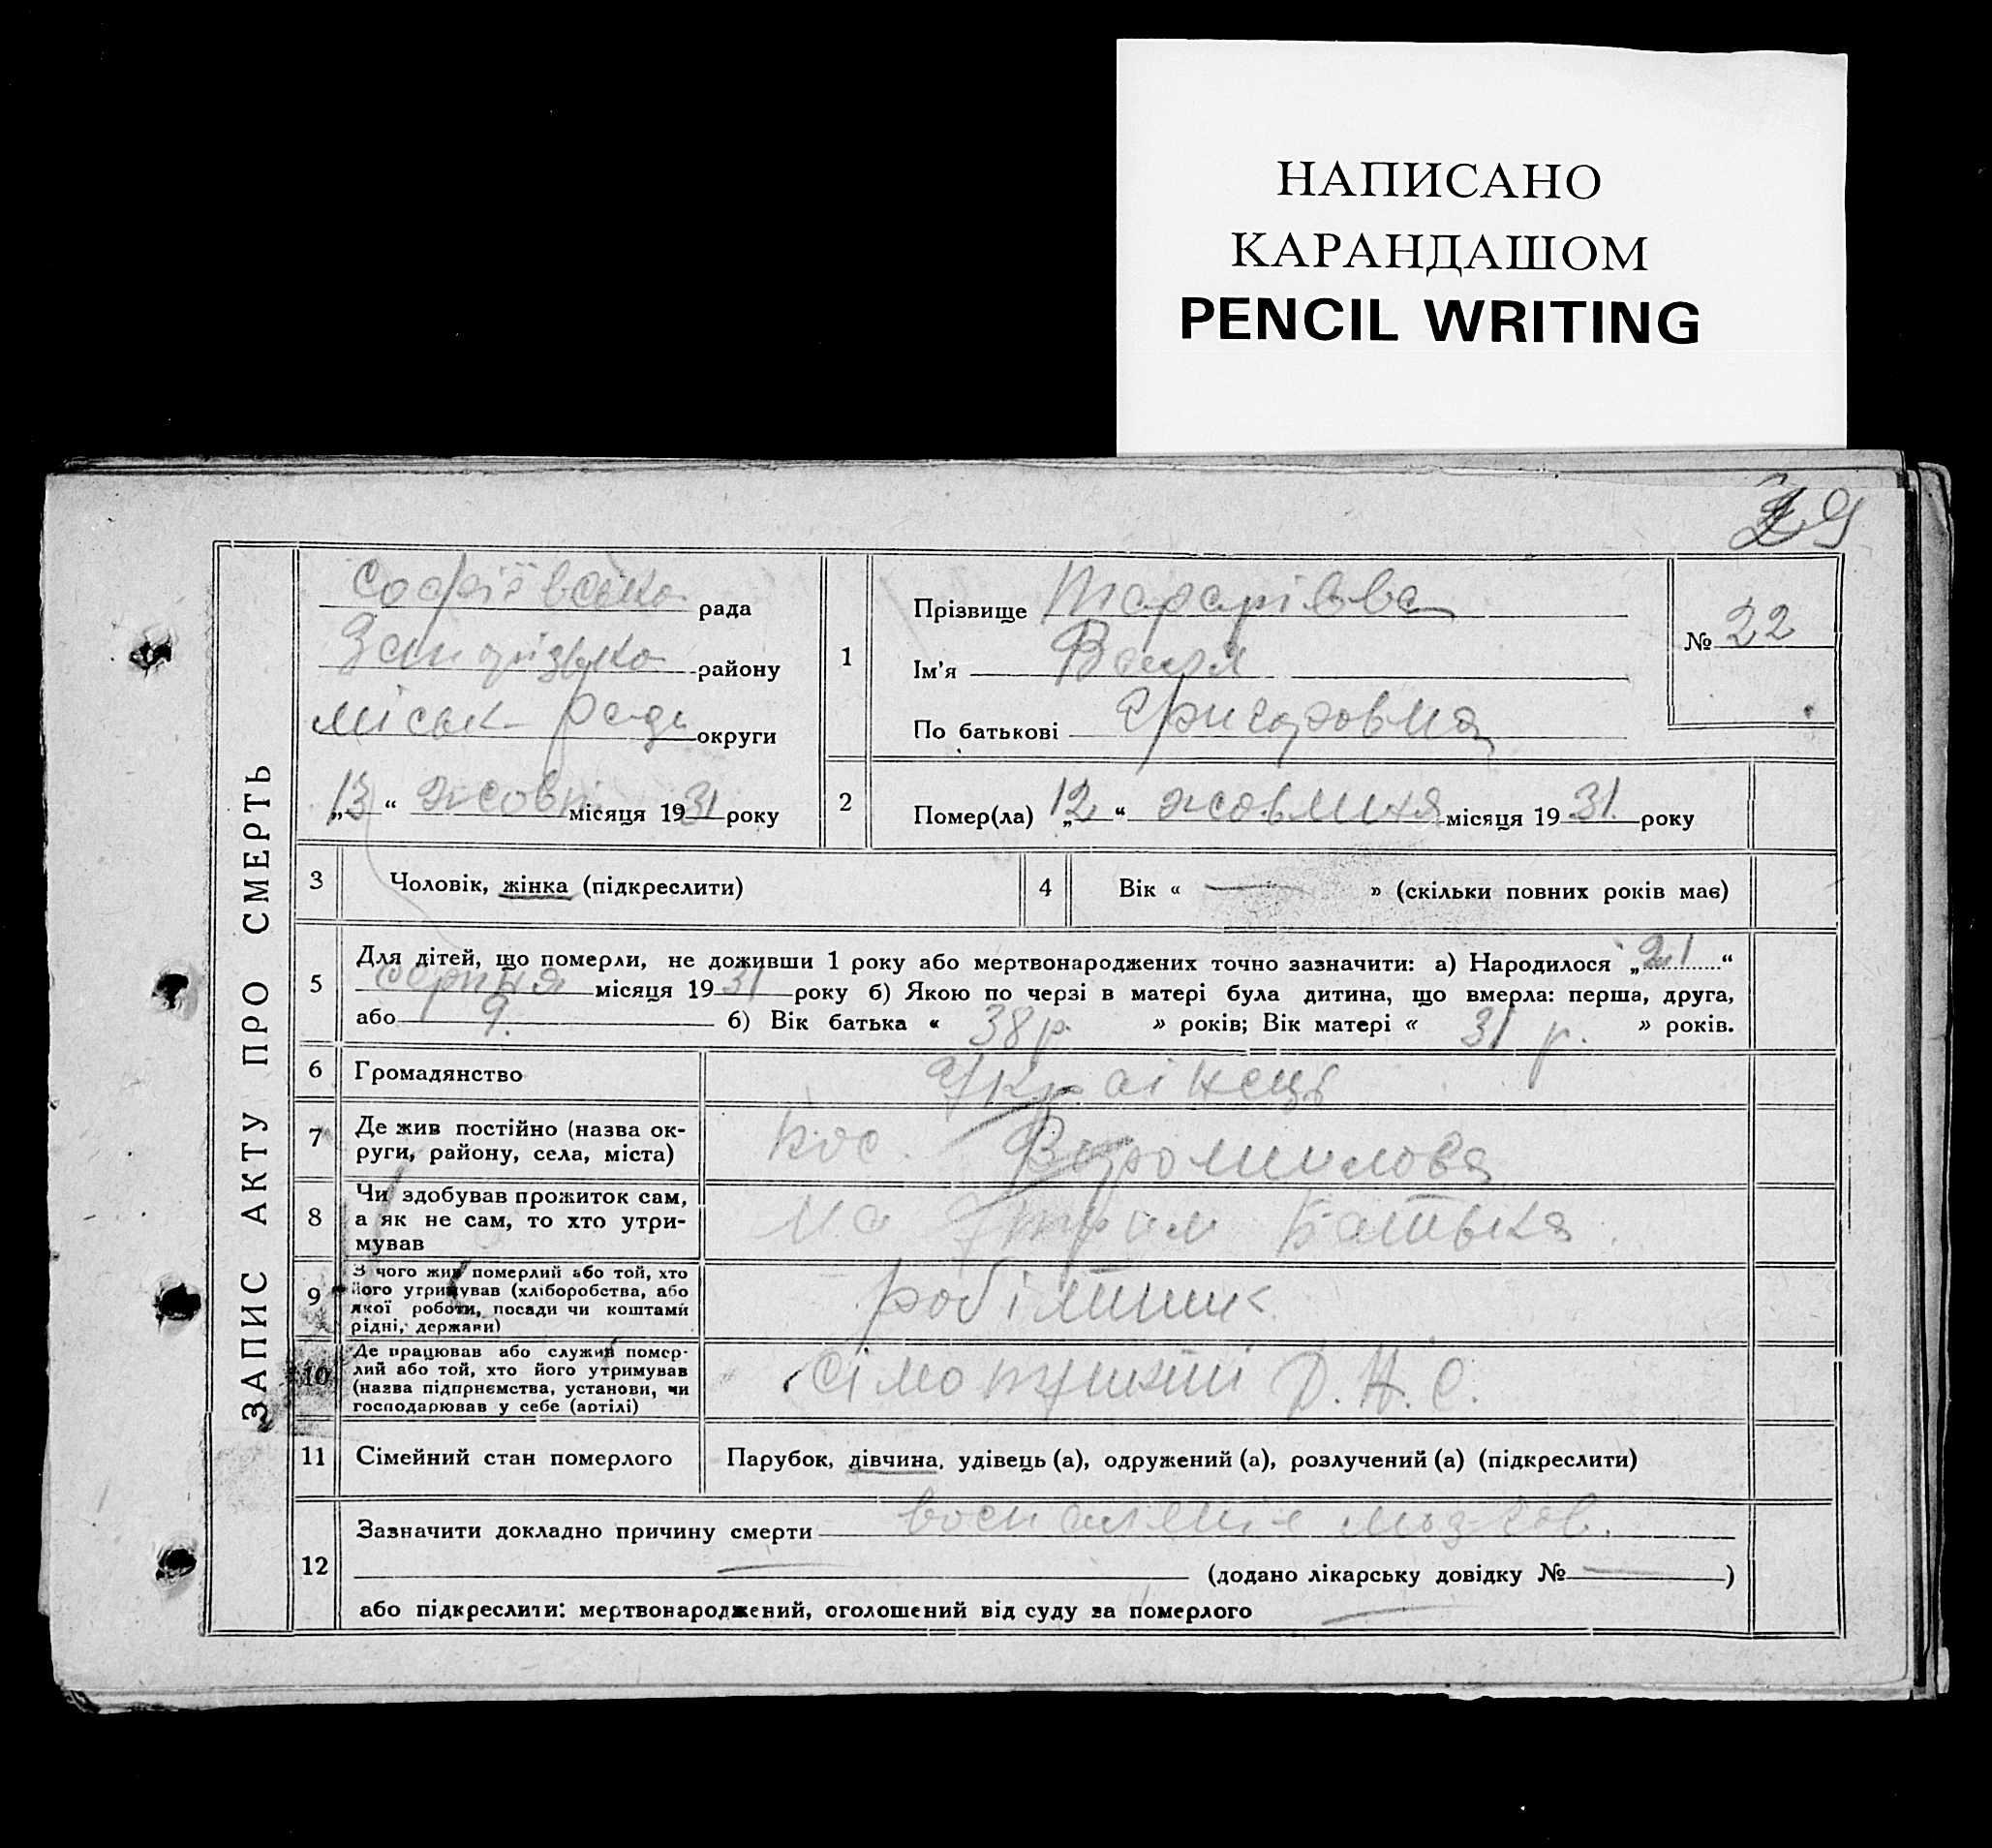 НАПИСАНО
КАРАНДАШОМ
PENCIL WRITING
29
ЗАПИС АКТУ ПРО СМЕРТЬ
Софіївська рада
району
міськ ради округи
„13“ жовт місяця 1931 року
1
Прізвище
Ім'я Валя
По батькові Григоровна
№ 22
2
Помер(ла) „12“ жовтня місяця 1931 року
3 Чоловік, жінка (підкреслити)
4 Вік « — » (скільки повних років має)
5 Для дітей, що померли, не доживши 1 року або мертвонароджених точно зазначити: а) Народилося „21“
серпня місяця 1931 року б) Якою по черзі в матері була дитина, що вмерла: перша, друга,
або 9. б) Вік батька « 38 р. » років; Вік матері « 31 р. » років.
6 Громадянство Українець
7 Де жив постійно (назва округи, району, села, міста) пос. Ворошилова
8 Чи здобував прожиток сам, а як не сам, то хто утримував на утрим батька
9 З чого жив померлий або той, хто його утримував (хліборобства, або якої роботи, посади чи коштами рідні, держави) робітник
10 Де працював або служив померлий або той, хто його утримував (назва підприємства, установи, чи господарював у себе (артілі) Д. Н. С.
11 Сімейний стан померлого Парубок, дівчина, удівець (а), одружений (а), розлучений (а) (підкреслити)
12 Зазначити докладно причину смерти воспаленіе мозгов.
— (додано лікарську довідку № — )
або підкреслити: мертвонароджений, оголошений від суду за померлого —